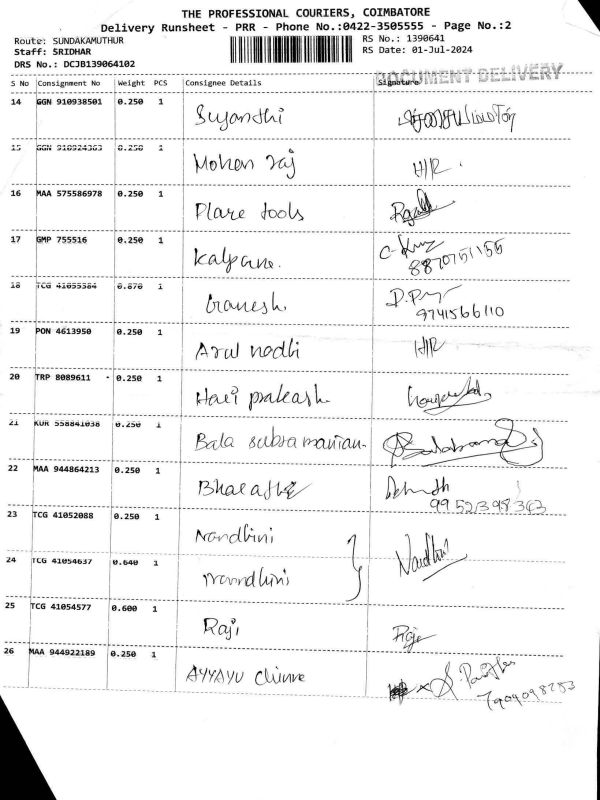 THE PROFESSIONAL COURIERS, COIMBATORE
Delivery Runsheet - PRR - Phone No.:0422-3505555 - Page No.:2
Route: SUNDAKAMUTHUR RS No.: 1390641
Staff: SRIDHAR RS Date: 01-Jul-2024
DRS No.: DCJB139064102
DOCUMENT DELIVERY
S No Consignment No Weight PCS Consignee Details Signature
14 GGN 910938501 0.250 1 Sujanthi
15 GGN 910924363 0.250 1 Mohan raj H/R
16 MAA 575586978 0.250 1 Plare tools
17 GMP 755516 0.250 1 Kalpana.
8870751155
18 TCG 41055384 0.870 1 Ganesh
9741566110
19 PON 4613950 0.250 1 Arul nodhi H/R
20 TRP 8089611 0.250 1 Hari prakash
21 KUR 558841038 0.250 1 Bala subramanian.
22 MAA 944864213 0.250 1
9952398363
23 TCG 41052088 0.250 1 Nandhini Nandhini
24 TCG 41054637 0.640 1 nandhini
25 TCG 41054577 0.600 1 Raji
26 MAA 944922189 0.250 1 AYYAVU
7904098253